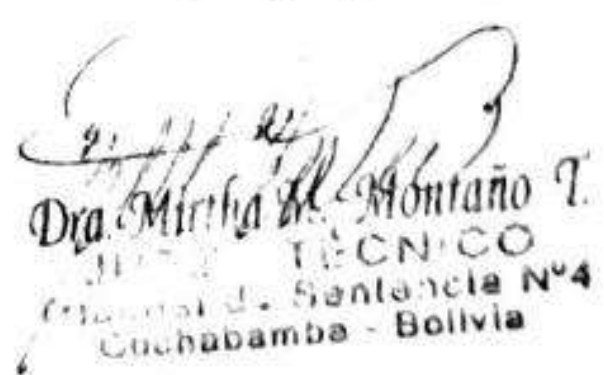 Dra. Mirtha M. Montaño T.
JUEZ TECNICO
Tribunal de Sentencia Nº4
Cochabamba - Bolivia